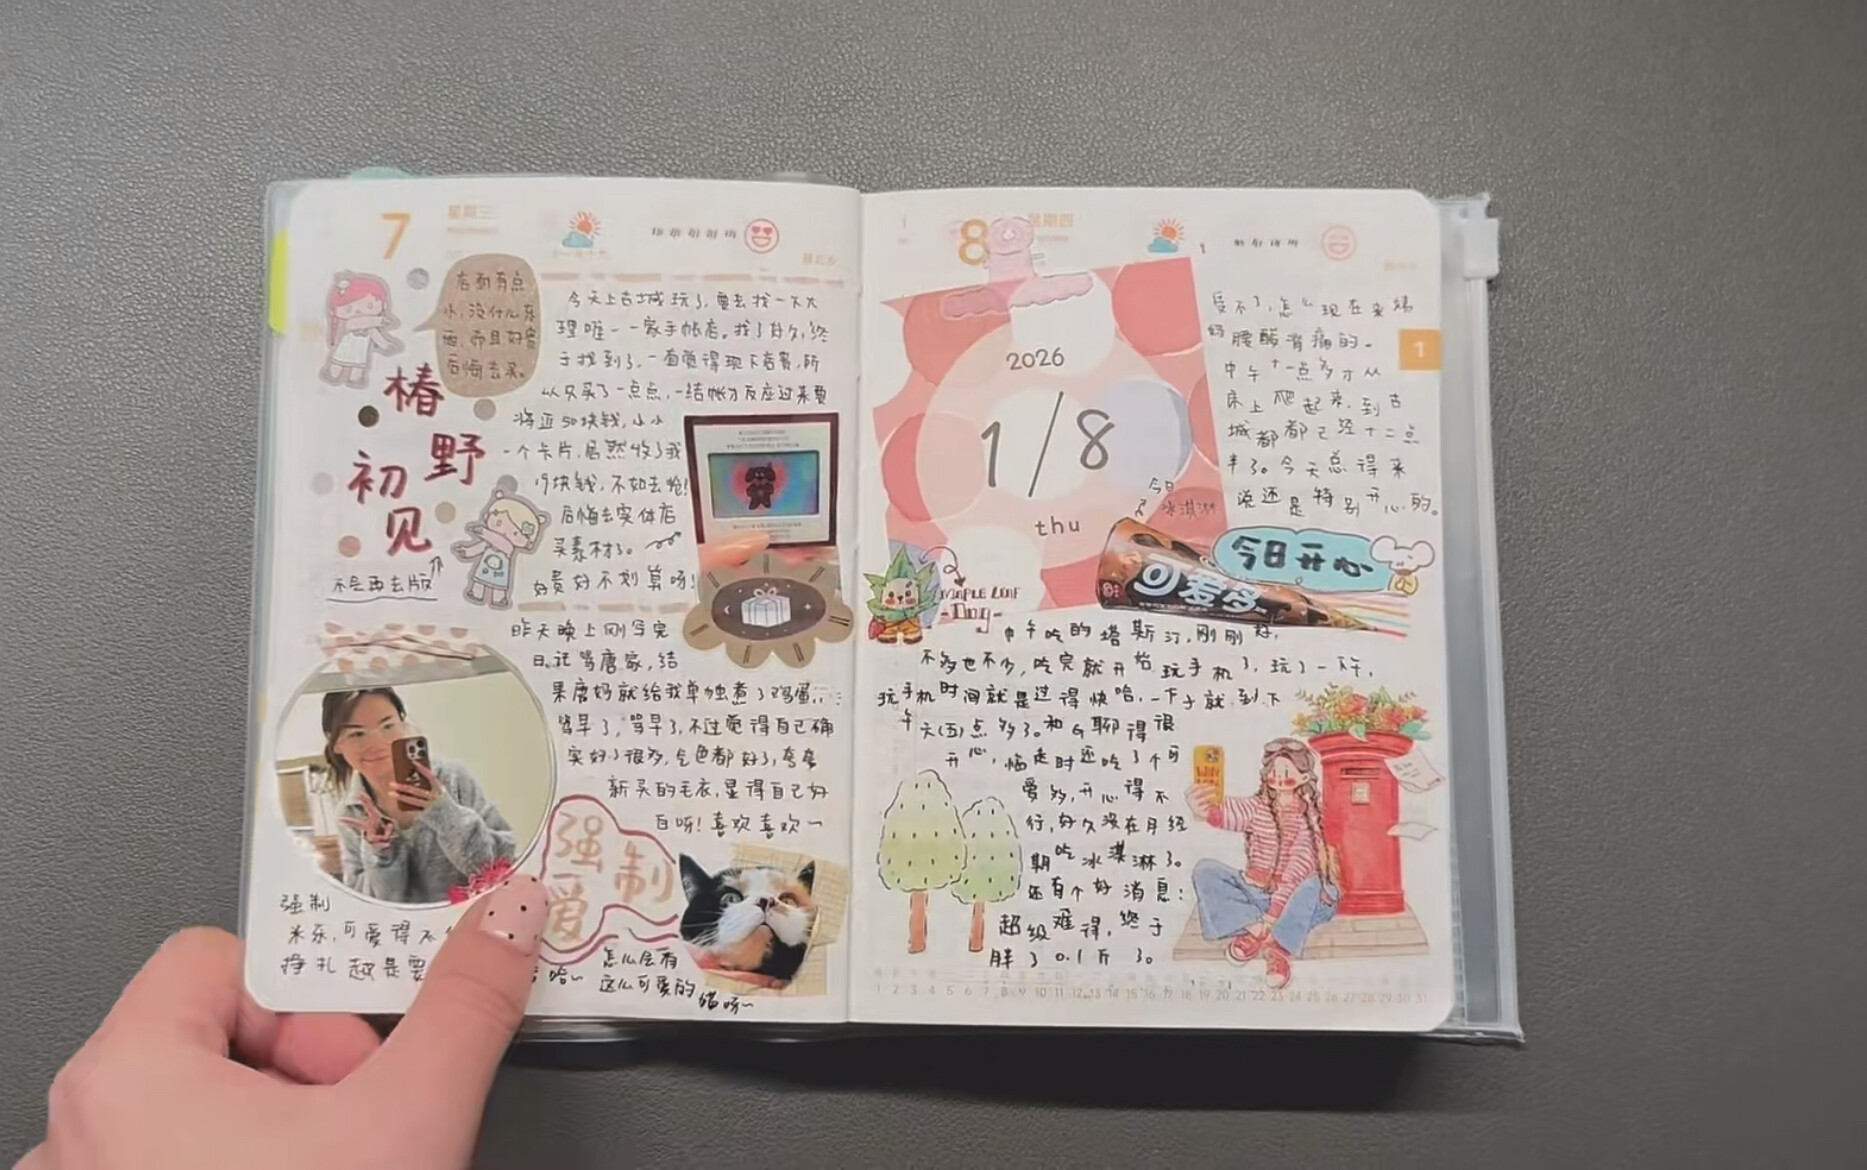 7
星期三
后面有点
小，没什么东
西，而且好贵
后悔去买。
椿
野
初
见
不会再去版
今天上古城玩了，要去找一下大
理唯一一家手帐店。找了好久，终
于找到了，一直觉得现下店贵，所
以只买了一点点，一结帐才反应过来要
将近50块钱，小小
一个卡片，居然收了我
19块钱，不如去抢！
后悔去实体店
买素材了。
好贵好不划算呀！
昨天晚上刚写完
日记骂唐家，结
果唐妈就给我单独煮了鸡蛋...
骂早了，骂早了，不过觉得自己确
实好了很多，气色都好了，夸夸
新买的毛衣，显得自己好
白呀！喜欢喜欢～
强制
爱
强制
米乐，可爱得不
挣扎越是要
哈～
怎么会有
这么可爱的
猫呀～
8
星期四
2026
1/8
thu
受不了，怎么现在来姨
妈腰酸背痛的。
中午十一点多才从
床上爬起来，到古
城都都已经十二点
半了。今天总得来
说还是特别开心的。
今日
冰淇淋
可爱多
今日开心
MAPLE LEAF
Dog
1
中午吃的塔斯汀，刚刚好，
不多也不少，吃完就开始玩手机了，玩了一下午，
玩手机时间就是过得快哈，一下子就到下
午天(五)点多了。和G聊得很
开心，临走时还吃了个可
爱多，开心得不
行，好久没在月经
期吃冰淇淋了。
还有个好消息：
超级难得，终于
胖了0.1斤了。
1 2 3 4 5 6 7 8 9 10 11 12 13 14 15 16 17 18 19 20 21 22 23 24 25 26 27 28 29 30 31